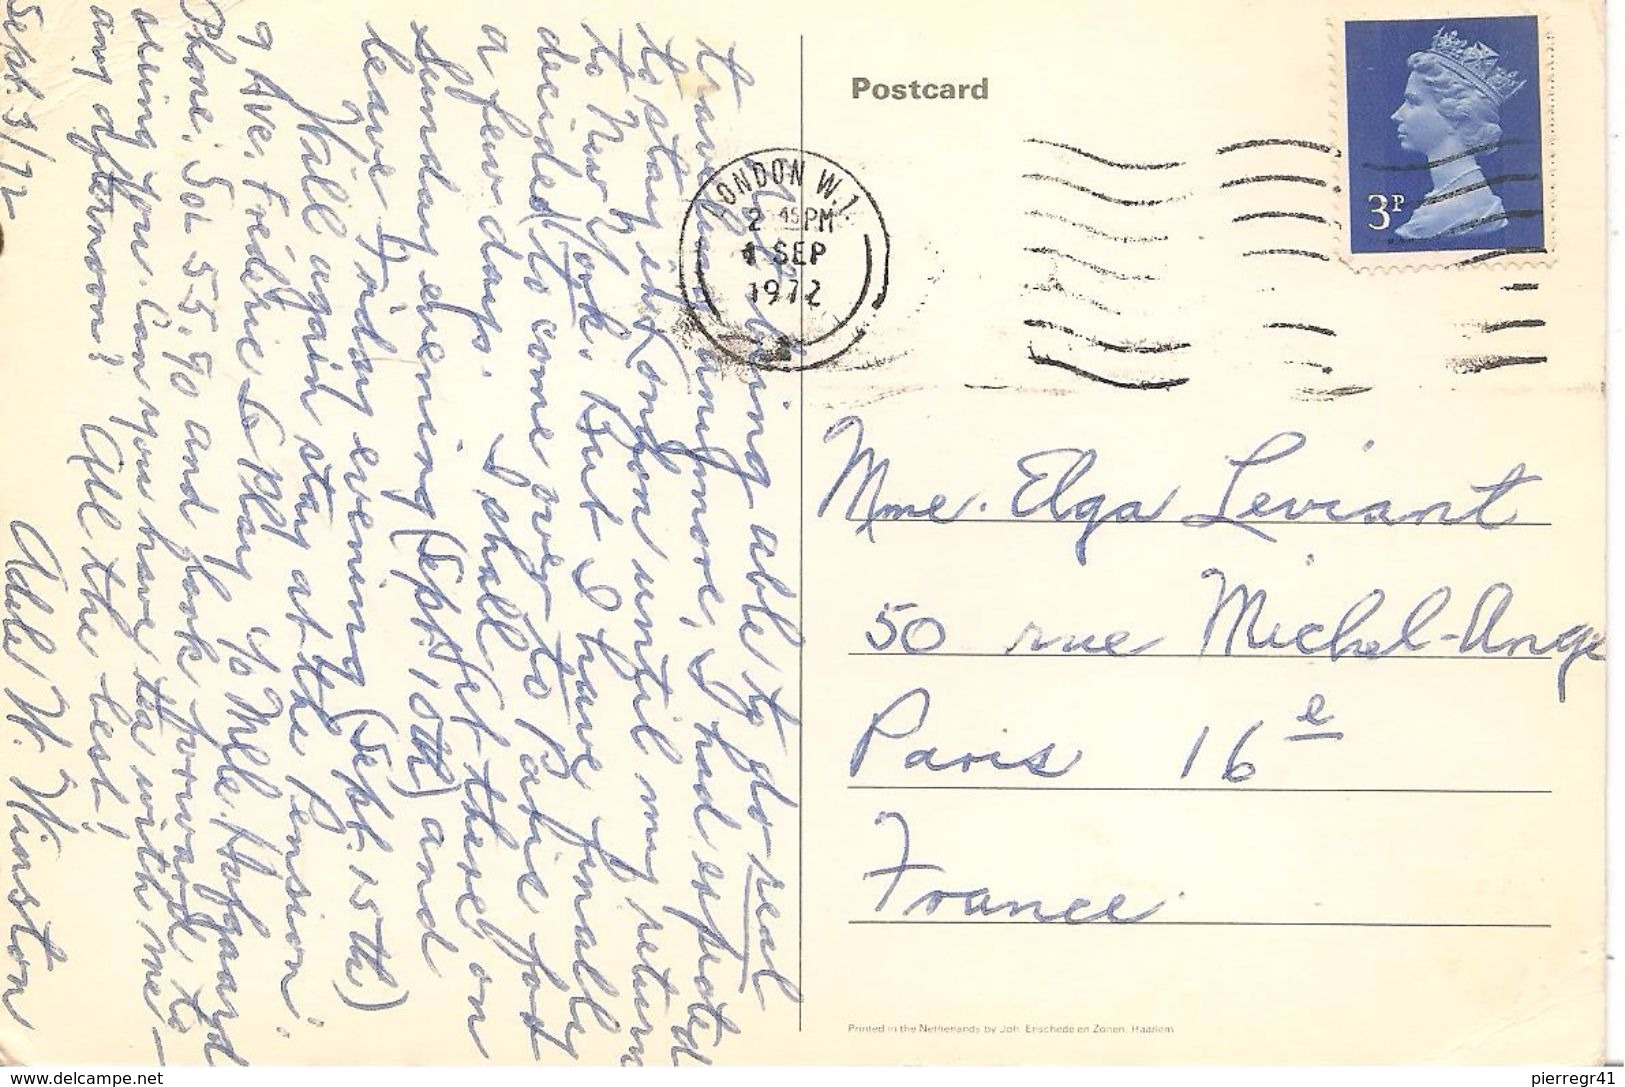 Not being able to do real
travelling anymore, I had expected
to stay in London until my return
to New York. But I have finally
decided to come over to Paris for
a few days. I shall get there on
Sunday evening (Sept. 10th) and
leave Friday evening (Sept. 15th)
Will again stay at the Pension:
9 Ave. Fréderic Le Play % Mlle. Hafgaard
Phone: Sol 55.90 and look forward to
seeing you. Can you have tea with me –
any afternoon? All the best!
Adele W. Winston
Sept. 1/72
Postcard
LONDON W.1.
2 45 PM
1 SEP
1972
3P
Mme. Elga Leviant
50 rue Michel-Ange
Paris 16e
France
Printed in the Netherlands by Joh. Enschedé en Zonen, Haarlem
www.delcampe.net
pierregr41